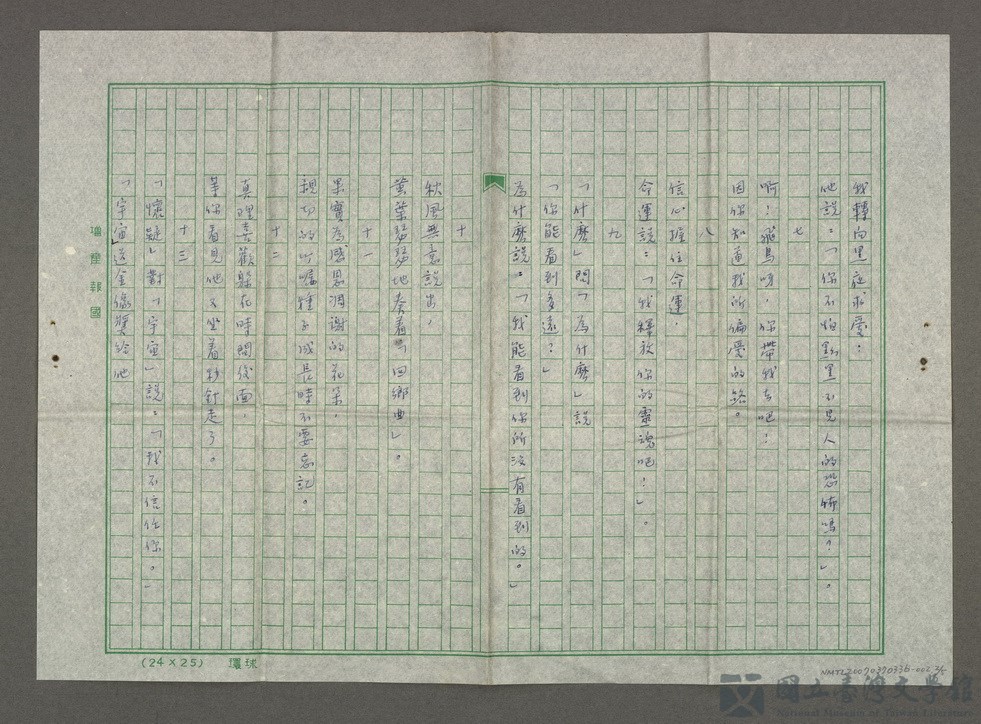 我轉向黑夜求愛:
他說:「你不怕黝黑不見人的恐怖嗎?」。
七
啊!飛鳥呀,你帶我去吧!
因你知道我所偏愛的路。
八
信心握住命運,
命運說:「我釋放你的靈魂吧!」。
九
「什麼」問「為什麼」說
「你能看到多遠?」
為什麼說:「我能看到你所沒有看到的。」
十
秋風無意說出,
葉葉 地奏着「回鄉曲」。
十一
果實為感恩凋謝的花朵,
親切的叮囑種子成長時不要忘記。
十二
真理喜歡躲在時間後面,
等你看見他又坐着秒針走了。
十三
「懷疑」對「宇宙」說:「我不信任你。」
「宇宙」送金像獎給他
增產報國
(24×25) 環球
NMTL20070370336-002 2/5
國立臺灣文學館
National Museum of Taiwan Literature